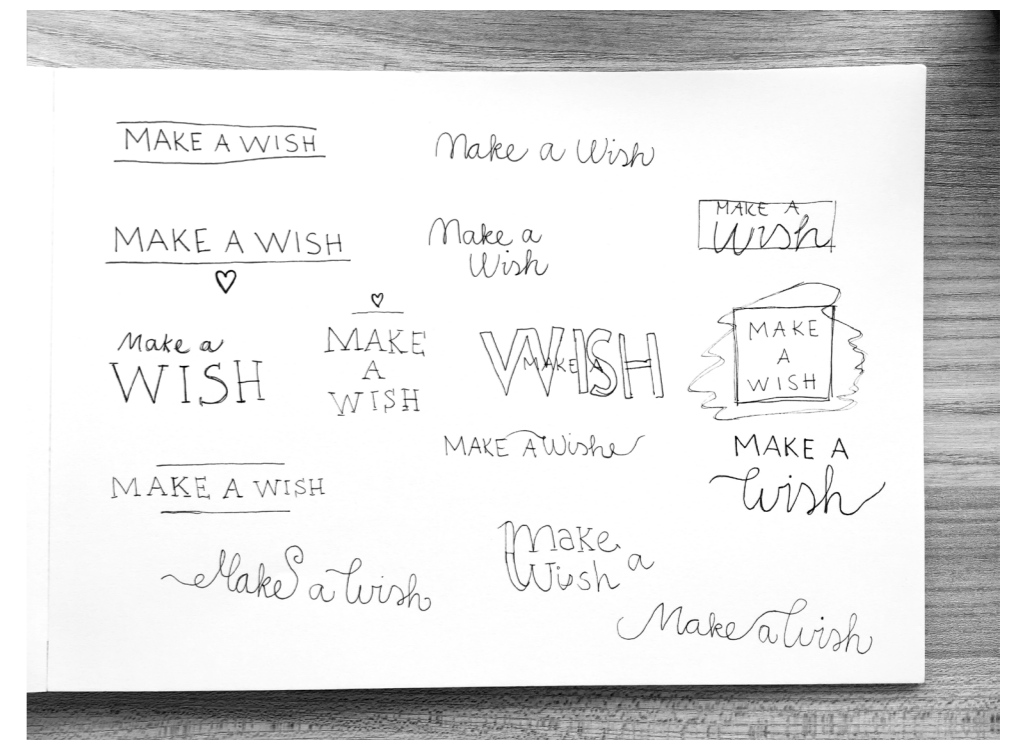 MAKE A WISH
Make a Wish
MAKE A WISH
Make a
Wish
MAKE A
Wish
Make a
WISH
MAKE
A
WISH
WISH
MAKE A
MAKE
A
WISH
MAKE A Wishe
MAKE A
Wish
MAKE A WISH
Make a Wish
Make a
Wish
Make a Wish